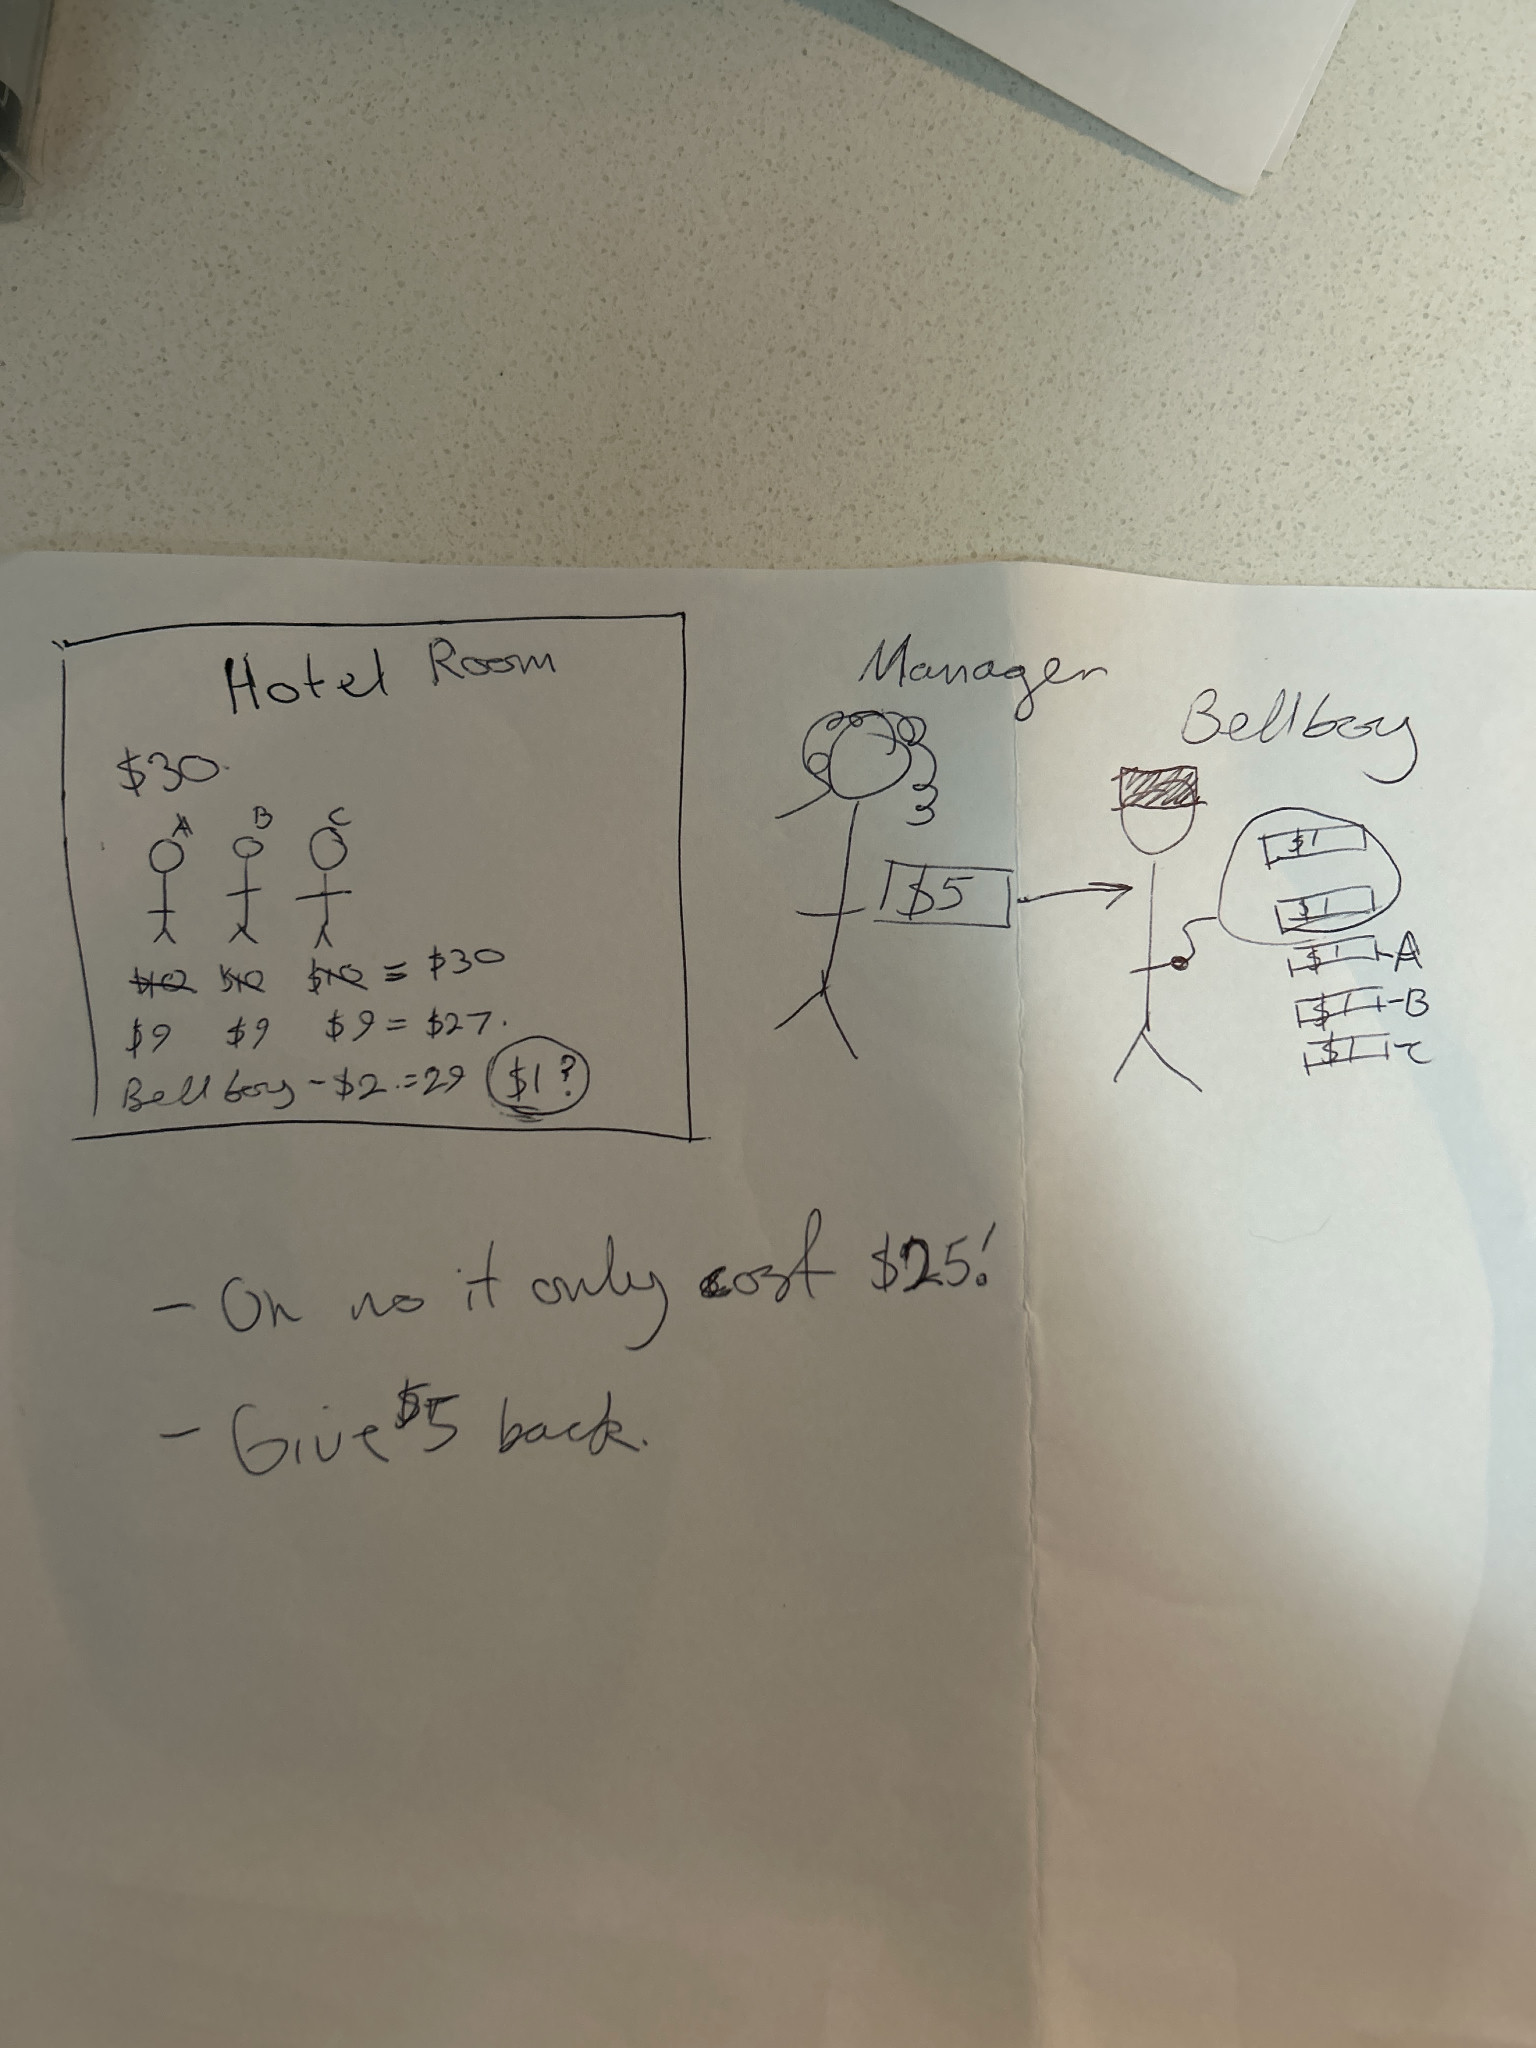 Hotel Room
$30.
A B C
$10 $10 $10 = $30
$9 $9 $9 = $27.
Bellboy - $2.=29 $1?
Manager
$5
Bellboy
$1
$1
$1 -A
$1 -B
$1 -C
- Oh no it only cost $25!
- Give $5 back.